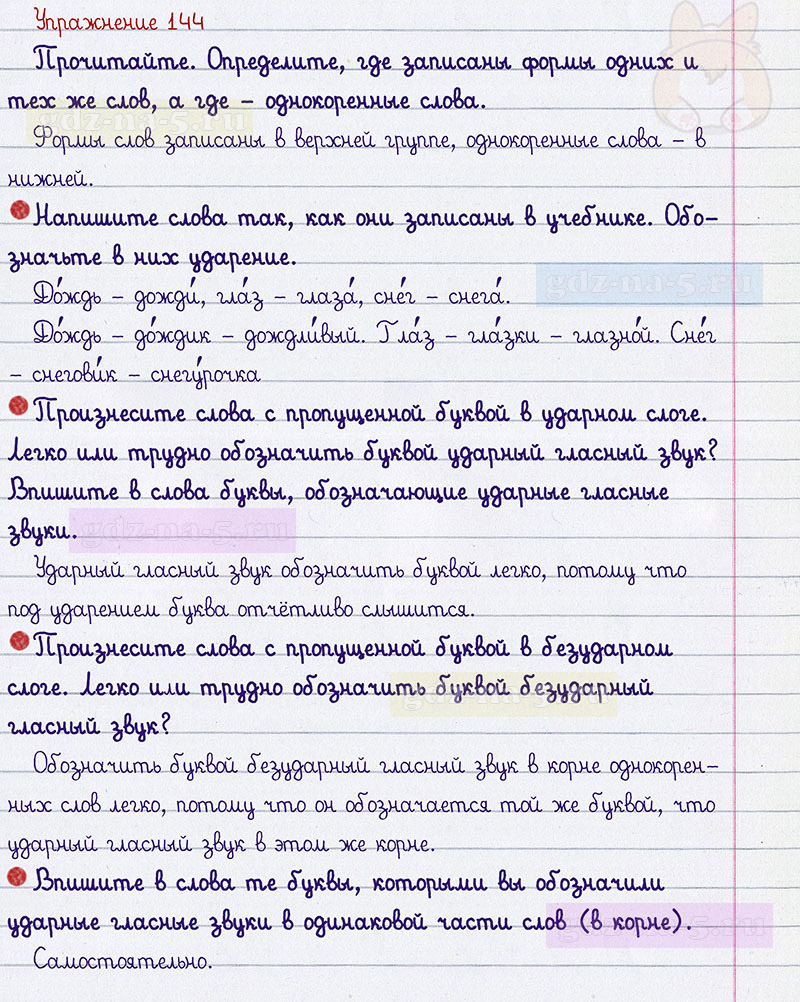 Упражнение 144
Прочитайте. Определите, где записаны формы одних и
тех же слов, а где – однокоренные слова.
gdz-na-5.ru
Формы слов записаны в верхней группе, однокоренные слова – в
нижней.
Напишите слова так, как они записаны в учебнике. Обо-
значьте в них ударение.
gdz-na-5.ru
До́ждь – дожди́, гла́з – глаза́, сне́г – снега́.
До́ждь – до́ждик – дождли́вый. Гла́з – гла́зки – глазно́й. Сне́г
– снегови́к – снегу́рочка
Произнесите слова с пропущенной буквой в ударном слоге.
Легко или трудно обозначить буквой ударный гласный звук?
Впишите в слова буквы, обозначающие ударные гласные
звуки.
gdz-na-5.ru
Ударный гласный звук обозначить буквой легко, потому что
под ударением буква отчётливо слышится.
Произнесите слова с пропущенной буквой в безударном
слоге. Легко или трудно обозначить буквой безударный
gdz-na-5.ru
гласный звук?
Обозначить буквой безударный гласный звук в корне однокорен-
ных слов легко, потому что он обозначается той же буквой, что
ударный гласный звук в этом же корне.
Впишите в слова те буквы, которыми вы обозначили
ударные гласные звуки в одинаковой части слов (в корне).
gdz-na-5.ru
Самостоятельно.